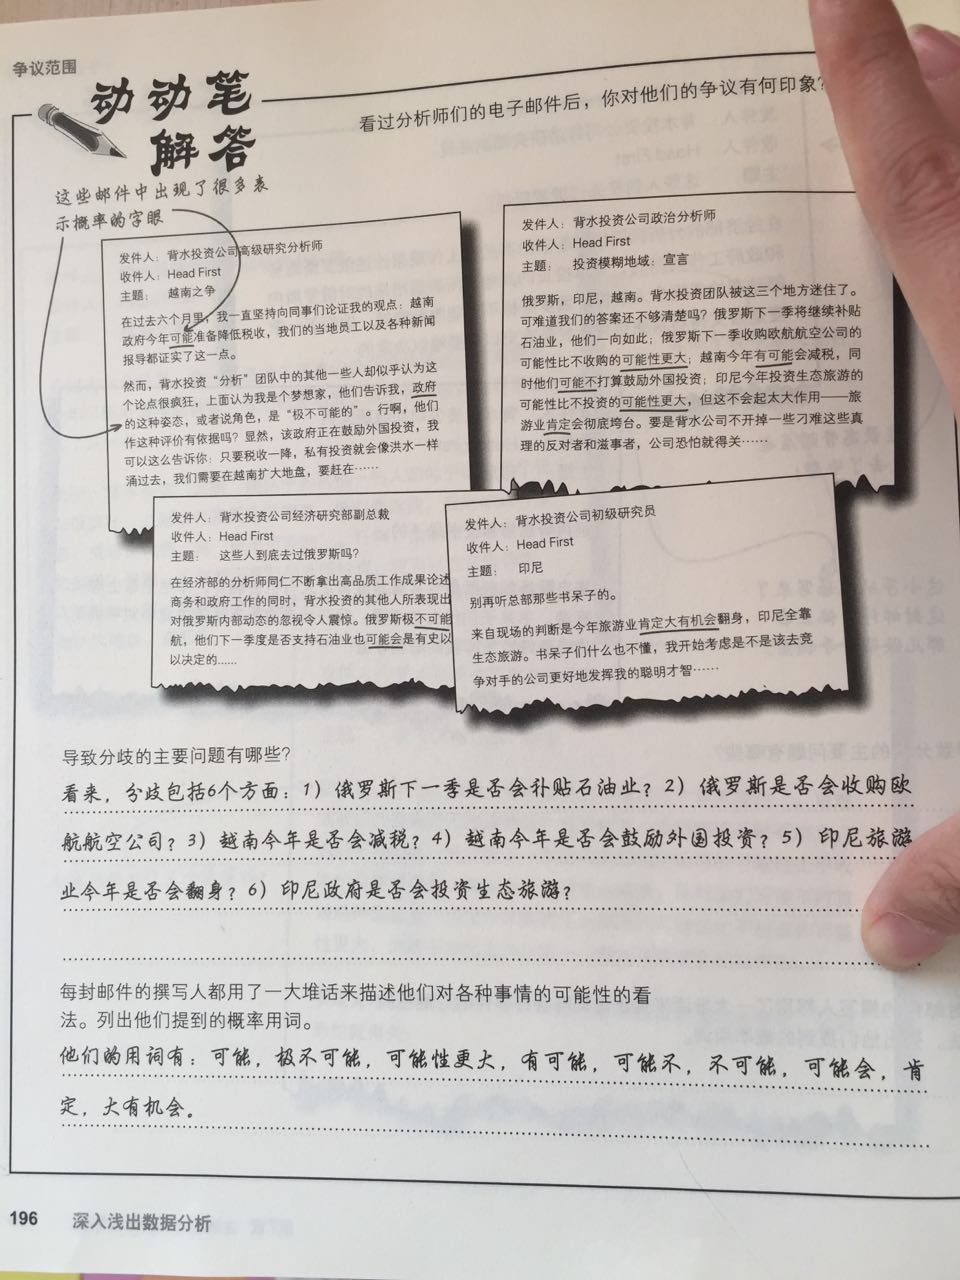 争议范围
动动笔
解答
看过分析师们的电子邮件后，你对他们的争议有何印象？
这些邮件中出现了很多表
示概率的字眼
发件人：背水投资公司高级研究分析师
收件人：Head First
主题： 越南之争
在过去六个月里，我一直坚持向同事们论证我的观点：越南
政府今年可能准备降低税收，我们的当地员工以及各种新闻
报导都证实了这一点。
然而，背水投资“分析”团队中的其他一些人却似乎认为这
个论点很疯狂，上面认为我是个梦想家，他们告诉我，政府
的这种姿态，或者说角色，是“极不可能的”。行啊，他们
作这种评价有依据吗？显然，该政府正在鼓励外国投资，我
可以这么告诉你：只要税收一降，私有投资就会像洪水一样
涌过去，我们需要在越南扩大地盘，要赶在……
发件人：背水投资公司政治分析师
收件人：Head First
主题： 投资模糊地域：宣言
俄罗斯，印尼，越南。背水投资团队被这三个地方迷住了。
可难道我们的答案还不够清楚吗？俄罗斯下一季将继续补贴
石油业，他们一向如此；俄罗斯下一季收购欧航航空公司的
可能性比不收购的可能性更大；越南今年有可能会减税，同
时他们可能不打算鼓励外国投资；印尼今年投资生态旅游的
可能性比不投资的可能性更大，但这不会起太大作用——旅
游业肯定会彻底垮台。要是背水公司不开掉一些刁难这些真
理的反对者和滋事者，公司恐怕就得关……
发件人：背水投资公司经济研究部副总裁
收件人：Head First
主题： 这些人到底去过俄罗斯吗？
在经济部的分析师同仁不断拿出高品质工作成果论述
商务和政府工作的同时，背水投资的其他人所表现出
对俄罗斯内部动态的忽视令人震惊。俄罗斯极不可能
航，他们下一季度是否支持石油业也可能会是有史以
以决定的……
发件人：背水投资公司初级研究员
收件人：Head First
主题： 印尼
别再听总部那些书呆子的。
来自现场的判断是今年旅游业肯定大有机会翻身，印尼全靠
生态旅游。书呆子们什么也不懂，我开始考虑是不是该去竞
争对手的公司更好地发挥我的聪明才智……
导致分歧的主要问题有哪些？
看来，分歧包括6个方面：1）俄罗斯下一季是否会补贴石油业？2）俄罗斯是否会收购欧
航航空公司？3）越南今年是否会减税？4）越南今年是否会鼓励外国投资？5）印尼旅游
业今年是否会翻身？6）印尼政府是否会投资生态旅游？
每封邮件的撰写人都用了一大堆话来描述他们对各种事情的可能性的看
法。列出他们提到的概率用词。
他们的用词有：可能，极不可能，可能性更大，有可能，可能不，不可能，可能会，肯
定，大有机会。
196 深入浅出数据分析